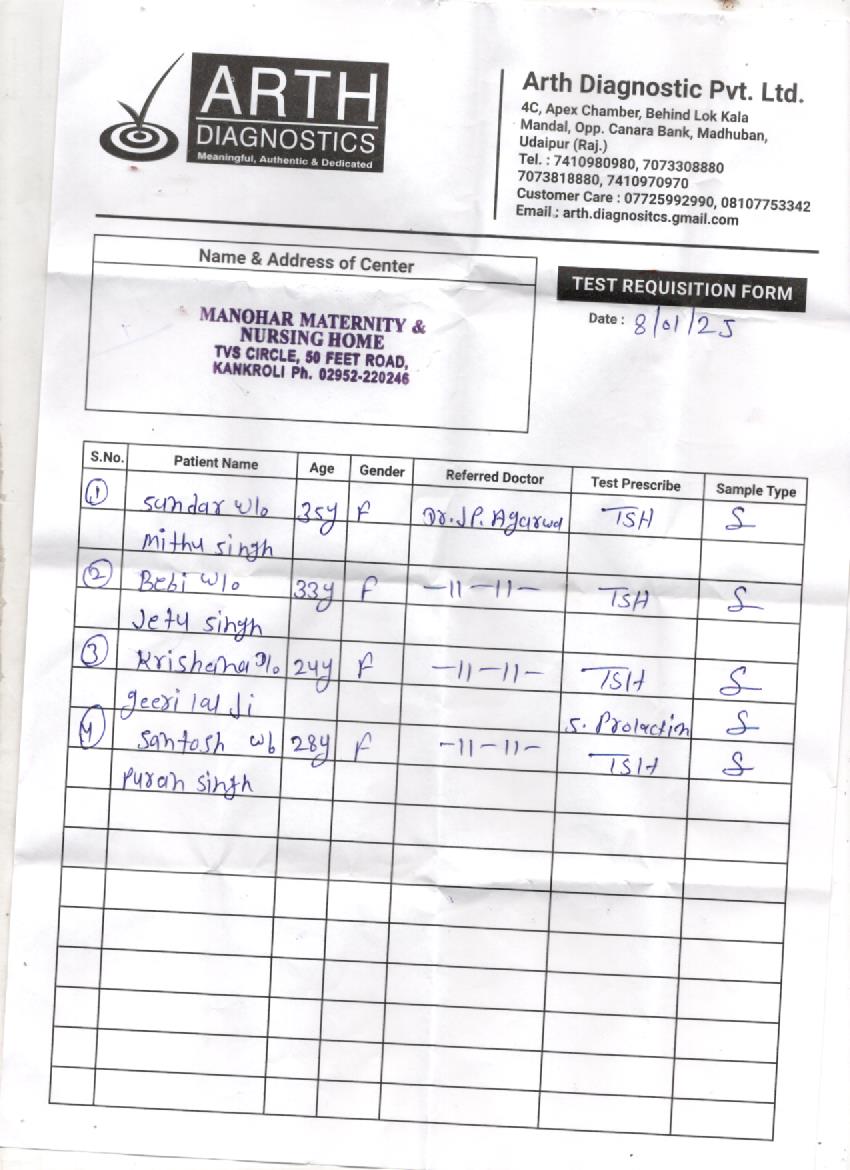 ARTH
DIAGNOSTICS
Meaningful, Authentic & Dedicated
Arth Diagnostic Pvt. Ltd.
4C, Apex Chamber, Behind Lok Kala
Mandal, Opp. Canara Bank, Madhuban,
Udaipur (Raj.)
Tel. : 7410980980, 7073308880
7073818880, 7410970970
Customer Care : 07725992990, 08107753342
Email : arth.diagnositcs.gmail.com
Name & Address of Center
MANOHAR MATERNITY &
NURSING HOME
TVS CIRCLE, 50 FEET ROAD,
KANKROLI Ph. 02952-220246
TEST REQUISITION FORM
Date : 8/01/25
S.No. Patient Name Age Gender Referred Doctor Test Prescribe Sample Type
1 Sundar w/o 35y F Dr. J.P. Agarwal TSH S
Mithu singh
2 Bebi w/o 33y F -11-11- TSH S
Jetu singh
3 Krishema 24y F -11-11- TSH S
geeri lal Ji S. Prolactin S
4 Santosh w/o 28y F -11-11- TSH S
Puran singh